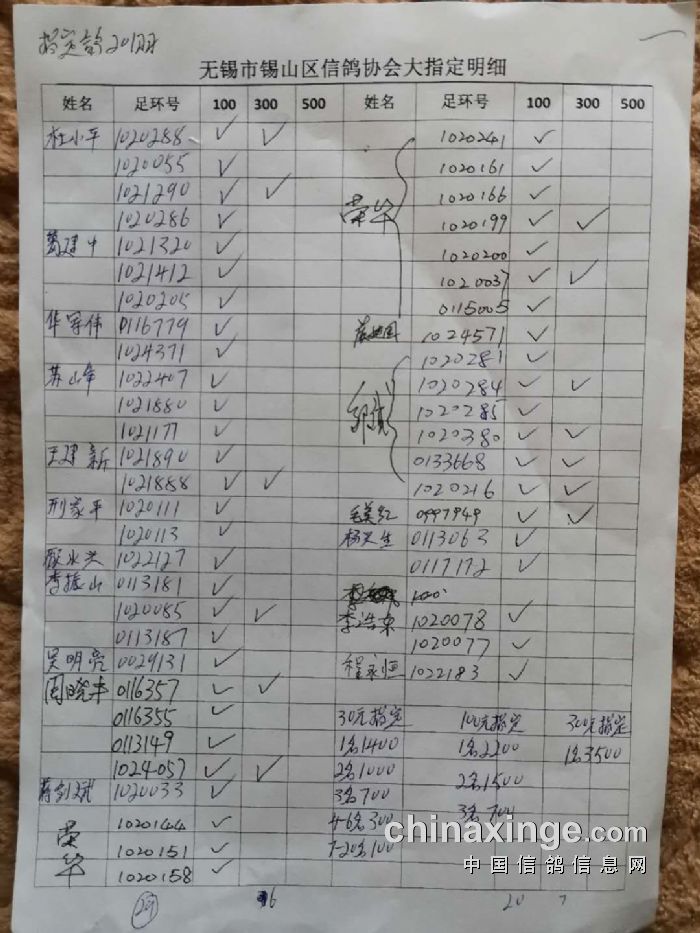 指定鸽2018
无锡市锡山区信鸽协会大指定明细
姓名 足环号 100 300 500 姓名 足环号 100 300 500
杜小平 1020288 ✓ ✓
1020055 ✓
1021290 ✓ ✓
1020286 ✓
葛建中 1021320 ✓
1021412 ✓
1020205 ✓
华军伟 0116779 ✓
1024371 ✓
苏山峰 1022407 ✓
1021880 ✓
1021177 ✓
王建新 1021890 ✓
1021888 ✓ ✓
邢家平 1020111 ✓
1020113 ✓
顾永兴 1022127 ✓
李振山 0113181 ✓
1020085 ✓ ✓
0113187 ✓
吴明亮 0029131 ✓
周晓丰 0116357 ✓ ✓
0116355 ✓
0113149 ✓
1024057 ✓ ✓
蒋剑斌 1020033 ✓
荣华 1020144 ✓
1020151 ✓
1020158 ✓
29 16
1020241 ✓
1020161 ✓
荣华 1020166 ✓
1020199 ✓ ✓
1020200 ✓
1020037 ✓ ✓
0115005 ✓
1024571 ✓
1020281 ✓
1020284 ✓ ✓
1020285 ✓
1020380 ✓ ✓
0133668 ✓ ✓
1020216 ✓ ✓
毛美红 0997949 ✓ ✓
杨兴生 0113063 ✓
0117172 ✓
李浩东 1020078 ✓
1020077 ✓
程永恒 1022183 ✓
30元指定 100元指定 300元指定
1名1400 1名2200 1名3500
2名1000 2名1500
3名700 3名700
4-6名300
7-20名100
20 7
chinaxinge.com
中国信鸽信息网